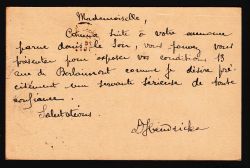 Mademoiselle,
Comme suite à votre annonce
parue dans le Soir, vous pouvez vous
présenter pour exposer vos conditions 13
rue de Berlaimont comme je désire pré-
cisément une servante sérieuse de toute
confiance.
Salutations
D Hendrickx